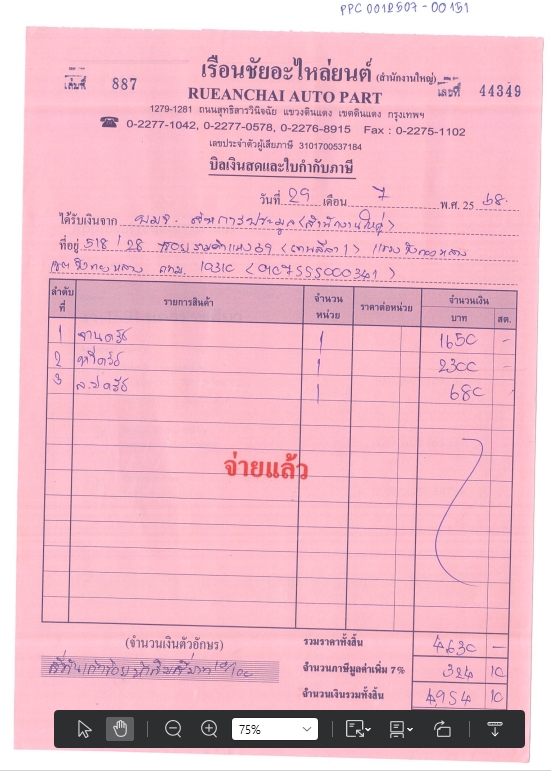 PPC 0012507-00151
เล่มที่ 887
เรือนชัยอะไหล่ยนต์ (สำนักงานใหญ่)
เลขที่ 44349
RUEANCHAI AUTO PART
1279-1281 ถนนสุทธิสารวินิจฉัย แขวงดินแดง เขตดินแดง กรุงเทพฯ
☎ 0-2277-1042, 0-2277-0578, 0-2276-8915 Fax : 0-2275-1102
เลขประจำตัวผู้เสียภาษี 3101700537184
บิลเงินสดและใบกำกับภาษี
วันที่ 29 เดือน 7 พ.ศ. 25 68
ได้รับเงินจาก บมจ. สหการประมูล (สำนักงานใหญ่)
ที่อยู่ 518/28 ซอยรามคำแหง 39 (เทพลีลา 1) แขวงวังทองหลาง
เขตวังทองหลาง กทม. 10310 (0107555000341)
ลำดับที่ รายการสินค้า จำนวนหน่วย ราคาต่อหน่วย จำนวนเงิน
บาท สต.
1 จานครัช 1 1650 -
2 หวีครัช 1 2300 -
3 ล.ป ครัช 1 680 -
จ่ายแล้ว
(จำนวนเงินตัวอักษร) รวมราคาทั้งสิ้น 4630 -
จำนวนภาษีมูลค่าเพิ่ม 7% 324 10
จำนวนเงินรวมทั้งสิ้น 4954 10
75%